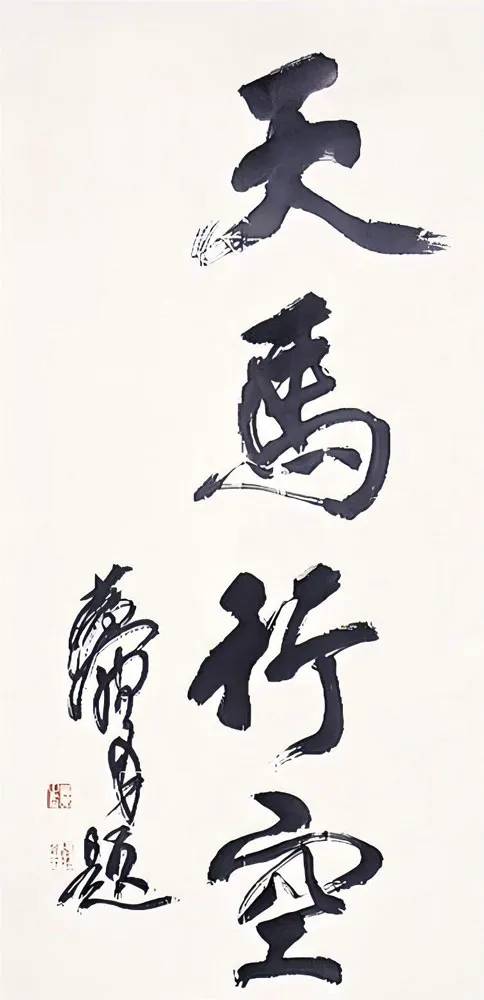 天馬行空
題